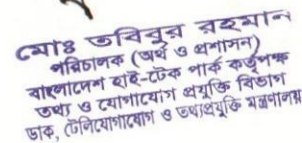 মোঃ তবিবুর রহমান
পরিচালক (অর্থ ও প্রশাসন)
বাংলাদেশ হাই-টেক পার্ক কর্তৃপক্ষ
তথ্য ও যোগাযোগ প্রযুক্তি বিভাগ
ডাক, টেলিযোগাযোগ ও তথ্যপ্রযুক্তি মন্ত্রণালয়